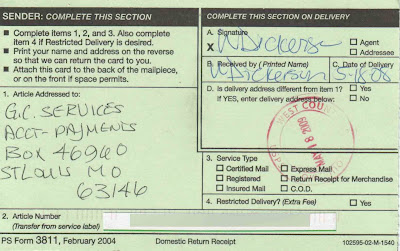 SENDER: COMPLETE THIS SECTION
■ Complete items 1, 2, and 3. Also complete
item 4 if Restricted Delivery is desired.
■ Print your name and address on the reverse
so that we can return the card to you.
■ Attach this card to the back of the mailpiece,
or on the front if space permits.
1. Article Addressed to:
G.C. SERVICES
ACCT-PAYMENTS
BOX 46960
ST LOUIS MO
63146
2. Article Number
(Transfer from service label)
PS Form 3811, February 2004
Domestic Return Receipt
102595-02-M-1540
COMPLETE THIS SECTION ON DELIVERY
A. Signature
X
Agent
Addressee
B. Received by (Printed Name)
C. Date of Delivery
Dickerson
5-18-09
D. Is delivery address different from item 1?
Yes
If YES, enter delivery address below:
No
WEST COUNTY
MAY 18 2009
3. Service Type
Certified Mail
Express Mail
Registered
Return Receipt for Merchandise
Insured Mail
C.O.D.
4. Restricted Delivery? (Extra Fee)
Yes